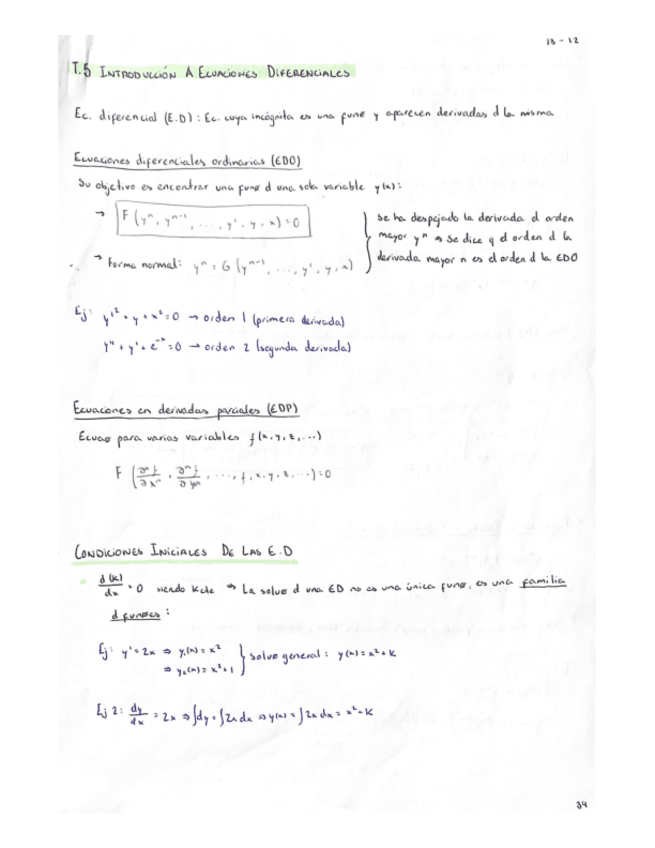 13-12
T.5 INTRODUCCIÓN A ECUACIONES DIFERENCIALES
Ec. diferencial (E.D): Ec. cuya incógnita es una func y aparecen derivadas d la misma
Ecuaciones diferenciales ordinarias (EDO)
Su objetivo es encontrar una func d una sola variable y(x):
→ F(yⁿ, yⁿ⁻¹, ..., y', y, x) = 0
→ Forma normal: yⁿ = G(yⁿ⁻¹, ..., y', y, x)
se ha despejado la derivada d orden
mayor yⁿ → Se dice q el orden d la
derivada mayor n es el orden d la EDO
Ej: y'² + y + x² = 0 → orden 1 (primera derivada)
y'' + y' + e⁻ˣ = 0 → orden 2 (segunda derivada)
Ecuaciones en derivadas parciales (EDP)
para varias variables f(x, y, z, ...)
F(∂ⁿf/∂xⁿ, ∂ⁿf/∂yⁿ, ..., f, x, y, z, ...) = 0
CONDICIONES INICIALES DE LAS E.D
d(K)/dx = 0 siendo K cte ⇒ La soluc d una ED no es una única func, es una familia
d funcs:
Ej: y' = 2x ⇒ y₁(x) = x²
⇒ y₂(x) = x² + 1 } soluc general: y(x) = x² + K
Ej 2: dy/dx = 2x ⇒ ∫dy = ∫2x dx ⇒ y(x) = ∫2x dx = x² + K
34